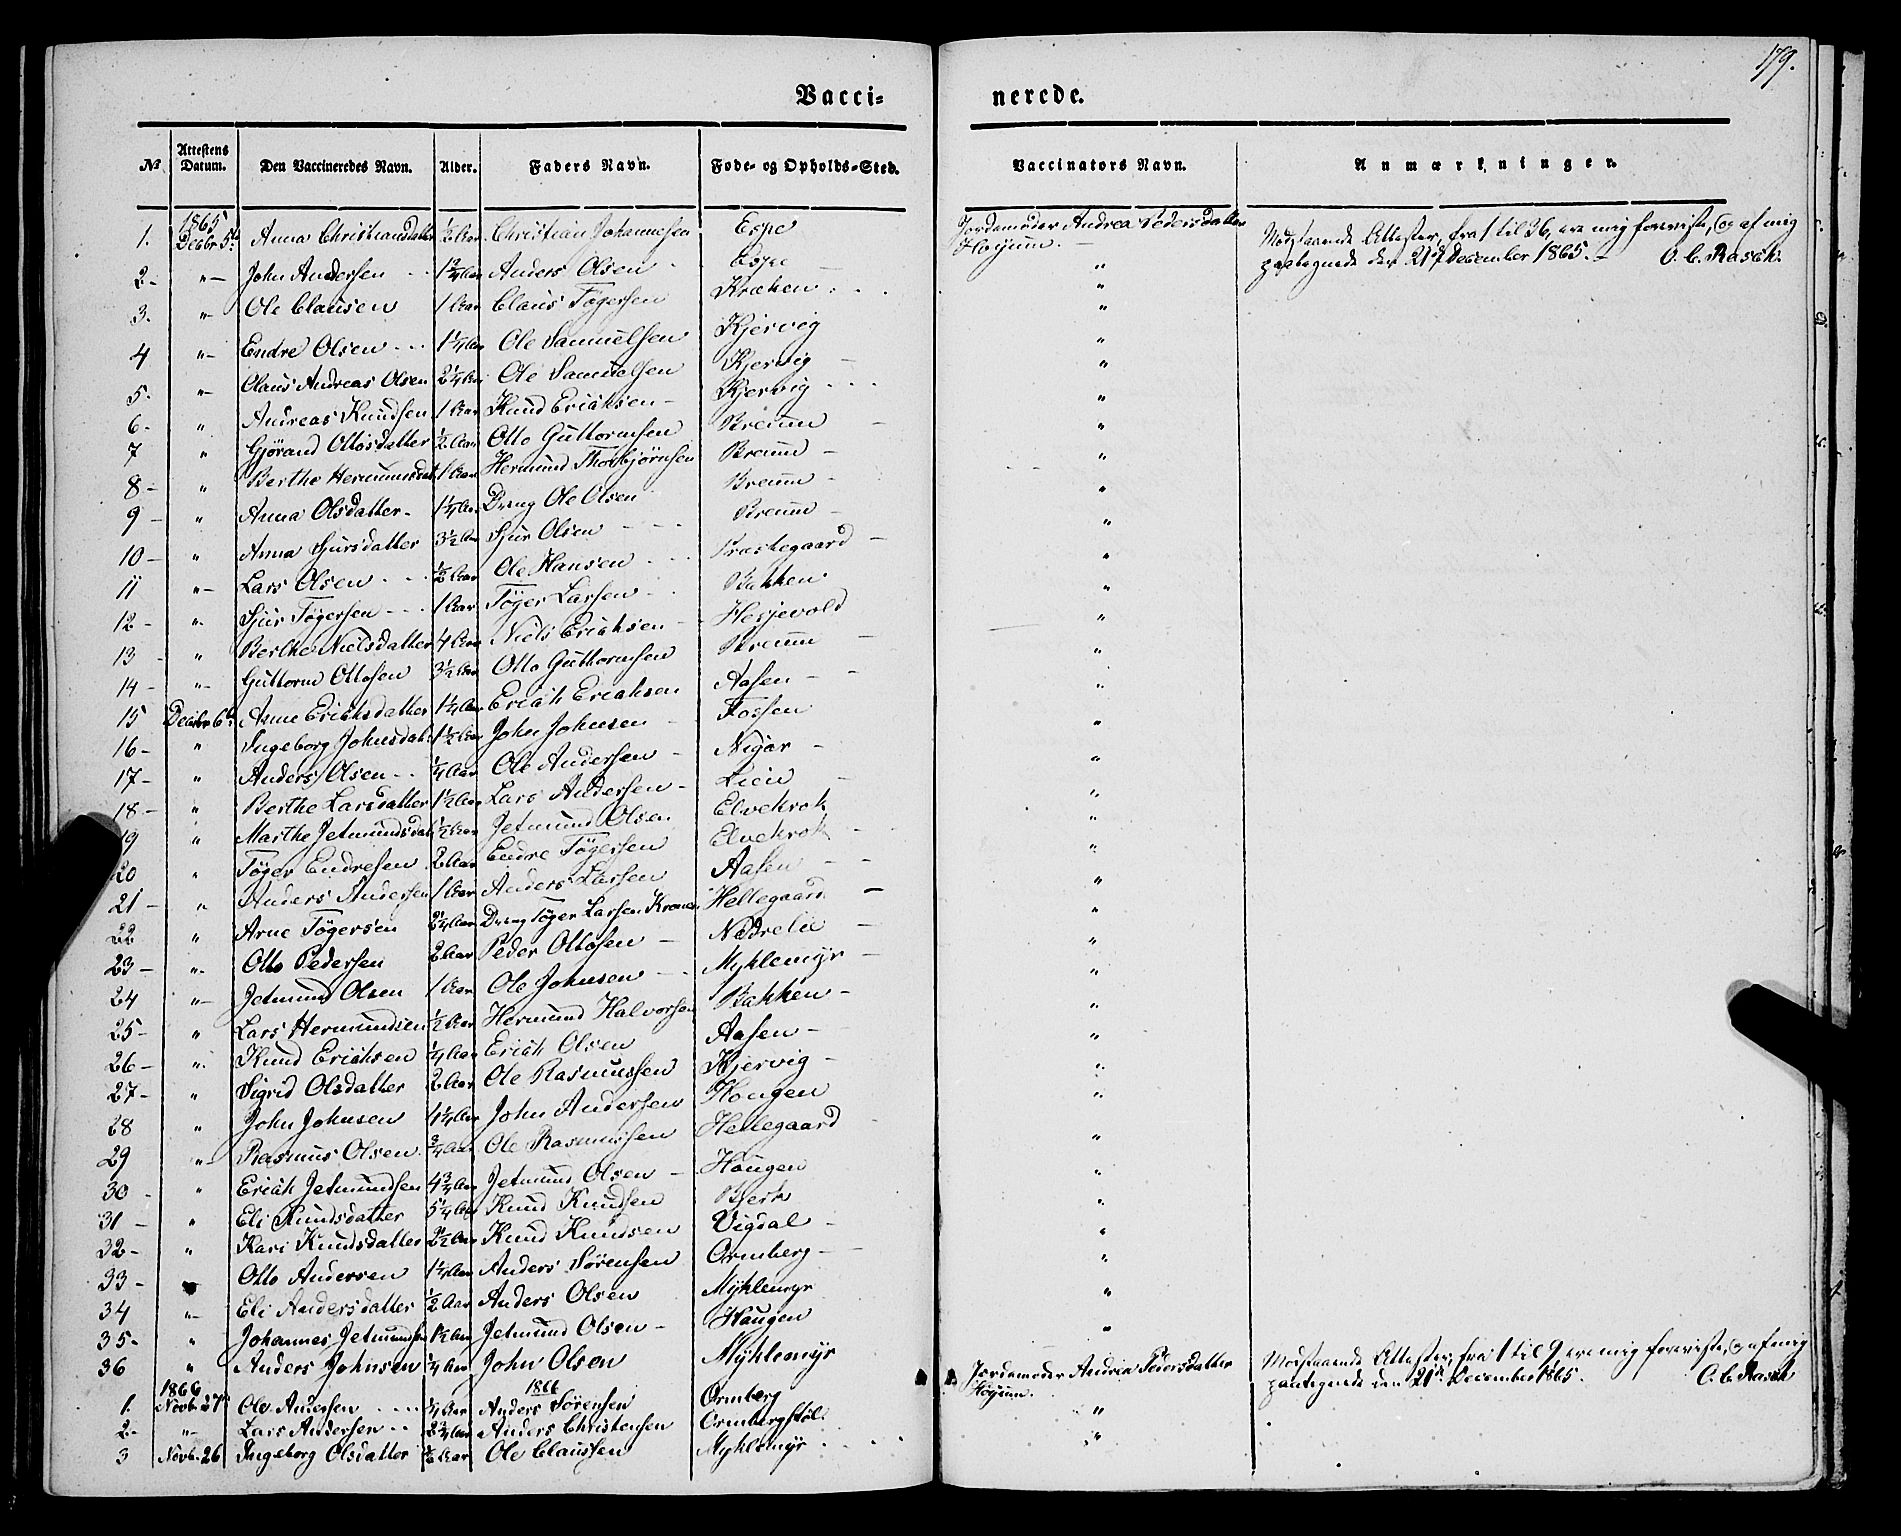 179.
Vacci= nerede.
№ Attestens Datum. Den Vaccineredes Navn. Alder. Faders Navn. Føde- og Opholds-Sted. Vaccinators Navn. Anmærkninger.
1865
1. Decbr 5te Anna Christiansdatter ½ Aar Christian Johannesen Espe Jordemoder Andrea Pedersdatter Modstaaende Attester, fra 1 til 36, ere mig foreviste, og af mig
2- "- John Andersen 1¾ Aar Anders Olsen Espe " paategnede den 21de December 1865. - O. C. Rasch.
3. "- Ole Clausen 1 Aar Claus Tøgersen Kræken "
4 "- Endre Olsen 1¼ Aar Ole Samuelsen Kjervig "
5. "- Claus Andreas Olsen 2¼ Aar Ole Samuelsen Kjervig - "
6- " Andreas Knudsen 1 Aar Knud Erichsen - Kjervig "
7 " Gjörand Ottosdatter ½ Aar Otto Guttormsen Kreum - "
8- " Berthe Hermunsdat 1 Aar Hermund Thorbjørnsen Kreum - "
9- " Anna Olsdatter- 1¼ Aar Dreng Ole Olsen Kreum - "
10- " Anna Sjursdatter 3½ Aar Sjur Olsen Kreum - "
11 "- Lars Olsen ½ Aar Ole Hansen Præstegaard - "
12- "- Sjur Tøgersen 1 Aar Tøger Larsen Bakken "
13- " Berthe Nielsdatter 4 Aar Niels Erichsen Hesjevold "
14- "- Guttorm Ottosen 3½ Aar Otto Guttormsen Kreum - "
15 Decbr 6te Anne Erichsdatter 1¼ Aar Erich Erichsen Aasen - "
16- " Ingeborg Johnsdat. 1½ Aar John Johnsen Fossen "
17- " Anders Olsen ¼ Aar Ole Andersen - Nigar - "
18- " Berthe Larsdatter 1½ Aar Lars Andersen - Lien - "
19 " Marthe Jetmundsdat ½ Aar Jetmund Olsen Elvekrok "
20 " Tøger Endresen 2 Aar Endre Tøgersen Elvekrok "
21- " Anders Andersen 1 Aar Anders Larsen Aasen - "
22 " Arne Tøgersen 2¼ Aar Dreng Tøger Larsen Kronen Hellegaard - "
23- "- Otto Pedersen 2 Aar Peder Ottosen - Nedrelie "
24 "- Jetmund Olsen 1 Aar Ole Johnsen - Myklemyr - "
25- " Lars Hermundsen ½ Aar Hermund Halvorsen Bakken - "
26- " Knud Erichsen ¼ Aar Erich Olsen Aasen - "
27- " Sigrid Olsdatter 2 Aar Ole Rasmussen Kjervig - "
28 " John Johnsen 1¼ Aar John Andersen Hougen "
29 "- Rasmus Olsen ¾ Aar Ole Rasmussen Hellegaard "
30 - " Erich Jetmundsen 4¾ Aar Jetmund Olsen - Haugen "
31 - " Eli Knudsdatter 5¼ Aar Knud Knudsen Bjerk "
32- " Kari Knudsdatter 2½ Aar Knud Knudsen Vigdal - "
33 - " Otto Andersen 1¼ Aar Anders Sørensen Ormberg - "
34 "- Eli Andersdatter ½ Aar Anders Olsen Myklemyr "
35- " Johannes Jetmundsen 1½ Aar Jetmund Olsen - Haugen "
36 " Anders Johnsen ¼ Aar John Olsen Myklemyr
1866 1866
1. Novb. 27 Ole Andersen ¼ Aar Anders Sørensen Ormberg Jordemoder Andrea Pedersdatter Modstaaende Attester, fra 1 til 9 ere mig foreviste, og af mig
2- "- Lars Andersen 2¾ Aar Anders Christensen Ormbergstøl " paategnede den 21de December 1865. O. C. Rasch
3 Novb. 26 Ingeborg Olsdatter Aar Ole Claussen Myklemyr "